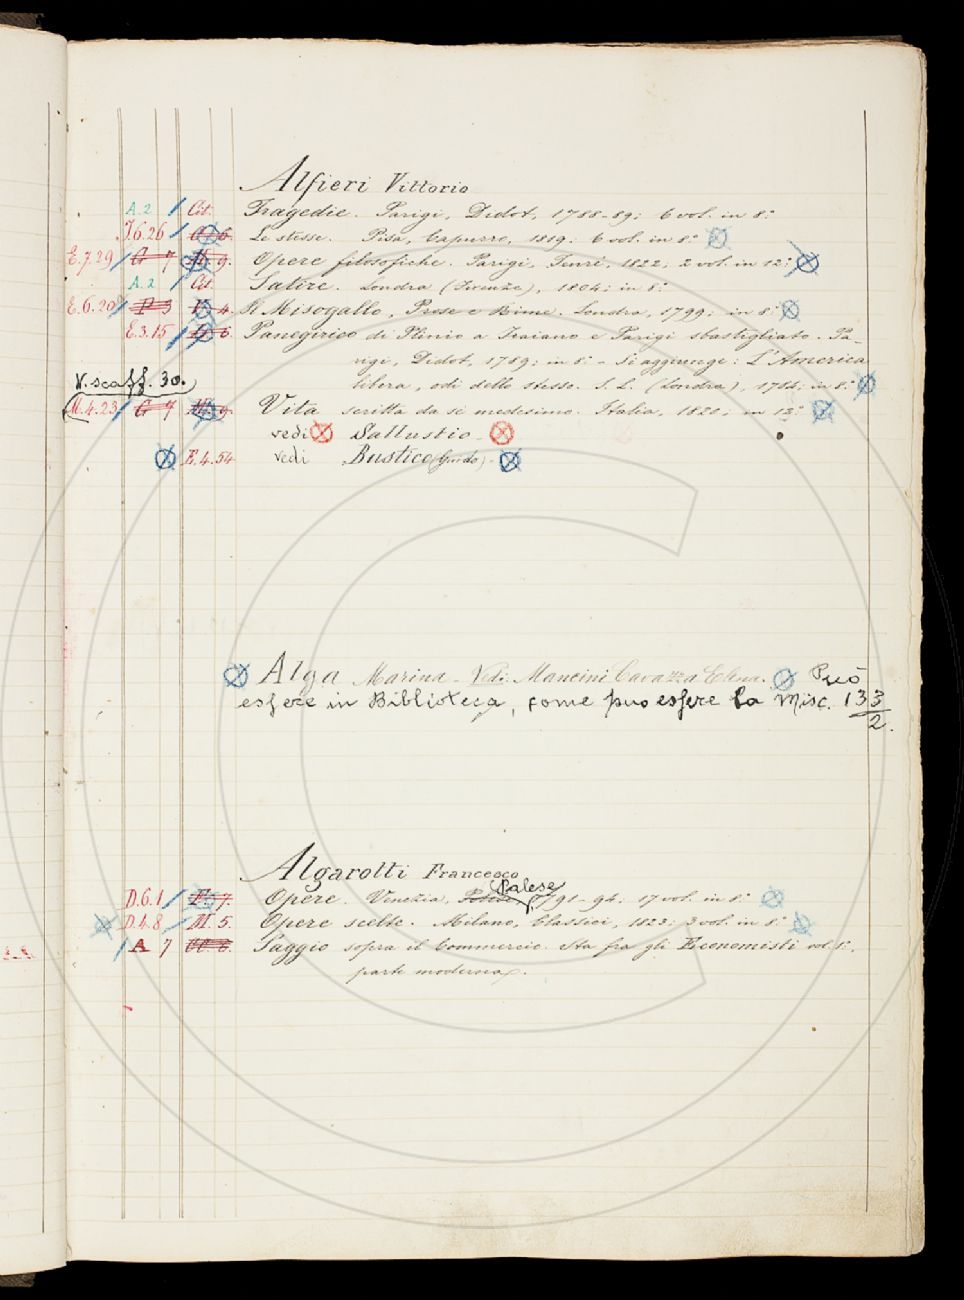 Alfieri Vittorio
A.2 / Cit. Tragedie. Parigi, Didot, 1788-89; 6 vol. in 8.°
J.6.26 / 6. Le stesse. Pisa, Capurro, 1819; 6 vol. in 8.°
E.7.29 / G 7 9. Opere filosofiche. Parigi, 1822, 2 vol. in 12.°
A.2 / Cit. Satire. Londra (Firenze), 1804; in 8.°
E.6.20 / P 3 4. Il Misogallo, Prose e Rime. Londra, 1799; in 8.°
E.3.15 / 6. Panegirico di Plinio a Traiano e Parigi sbastigliato. Pa-
rigi, Didot, 1789; in 8.° - Si aggiunge: L'America
libera, odi dello stesso. S. L. (Londra), 1784; in 8.°
V. scaff. 30.
M.4.23 / G 7 9. Vita scritta da sè medesimo. Italia, 182; in 12.°
vedi Sallustio -
E.4.54 vedi Bustico (Guido) -
Alga Marina - Vedi: Mancini Cavazza Elena. Può
essere in Biblioteca, come può essere la Misc. 133
2.
Algarotti Francesco
Palese
D.6.1 / F. 7. Opere. Venezia, 1791-94; 17 vol. in 8.°
D.4.8 / M. 5. Opere scelte. Milano, Classici, 1823; 3 vol. in 8.°
/ A 7 Saggio sopra il Commercio. Sta fra gli Economisti vol. 1.°,
parte moderna.